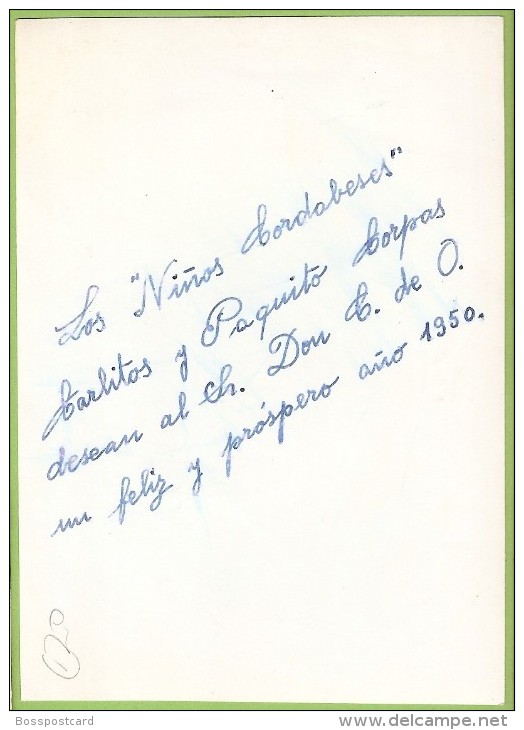 Los "Niños Cordobeses"
Carlitos y Paquito Corpas
desean al Sr. Don E. de O.
un feliz y próspero año 1950.
Bosspostcard
www.delcampe.net